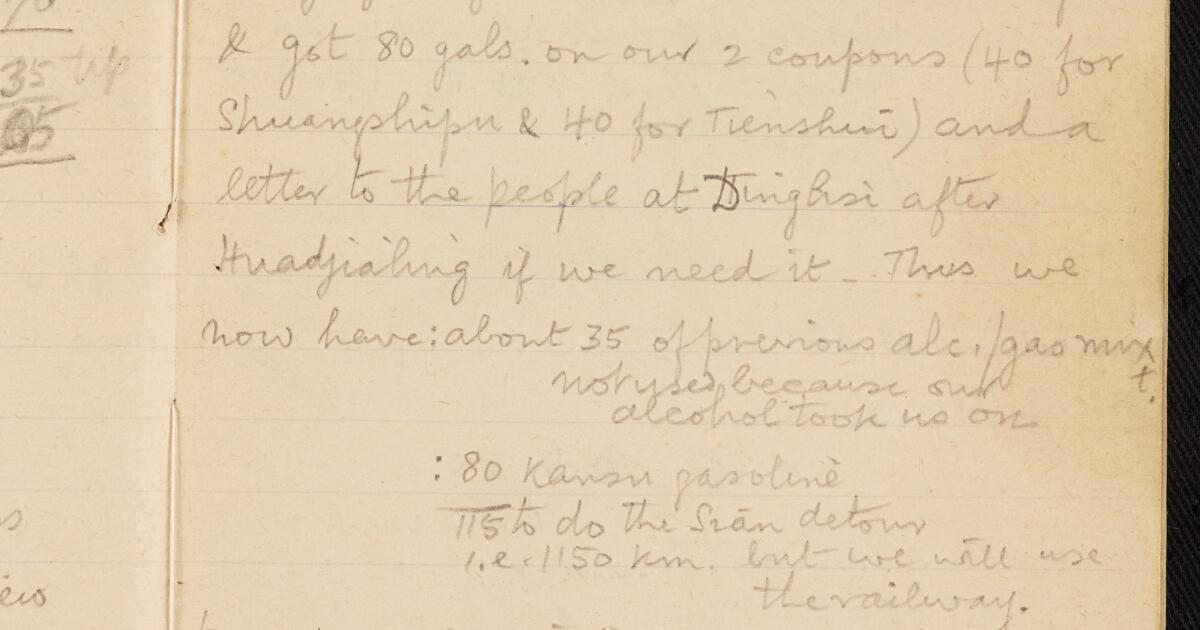 35 tip
& got 80 gals. on our 2 coupons (40 for
Shuangshipu & 40 for Tienshui) and a
letter to the people at Dinghsi after
Huadjialing if we need it - Thus we
now have: about 35 of previous alc./gas mixt.
not used because our
alcohol took us on
: 80 Kansu gasoline
115 to do the Sian detour
i.e. 1150 km. but we will use
the railway.